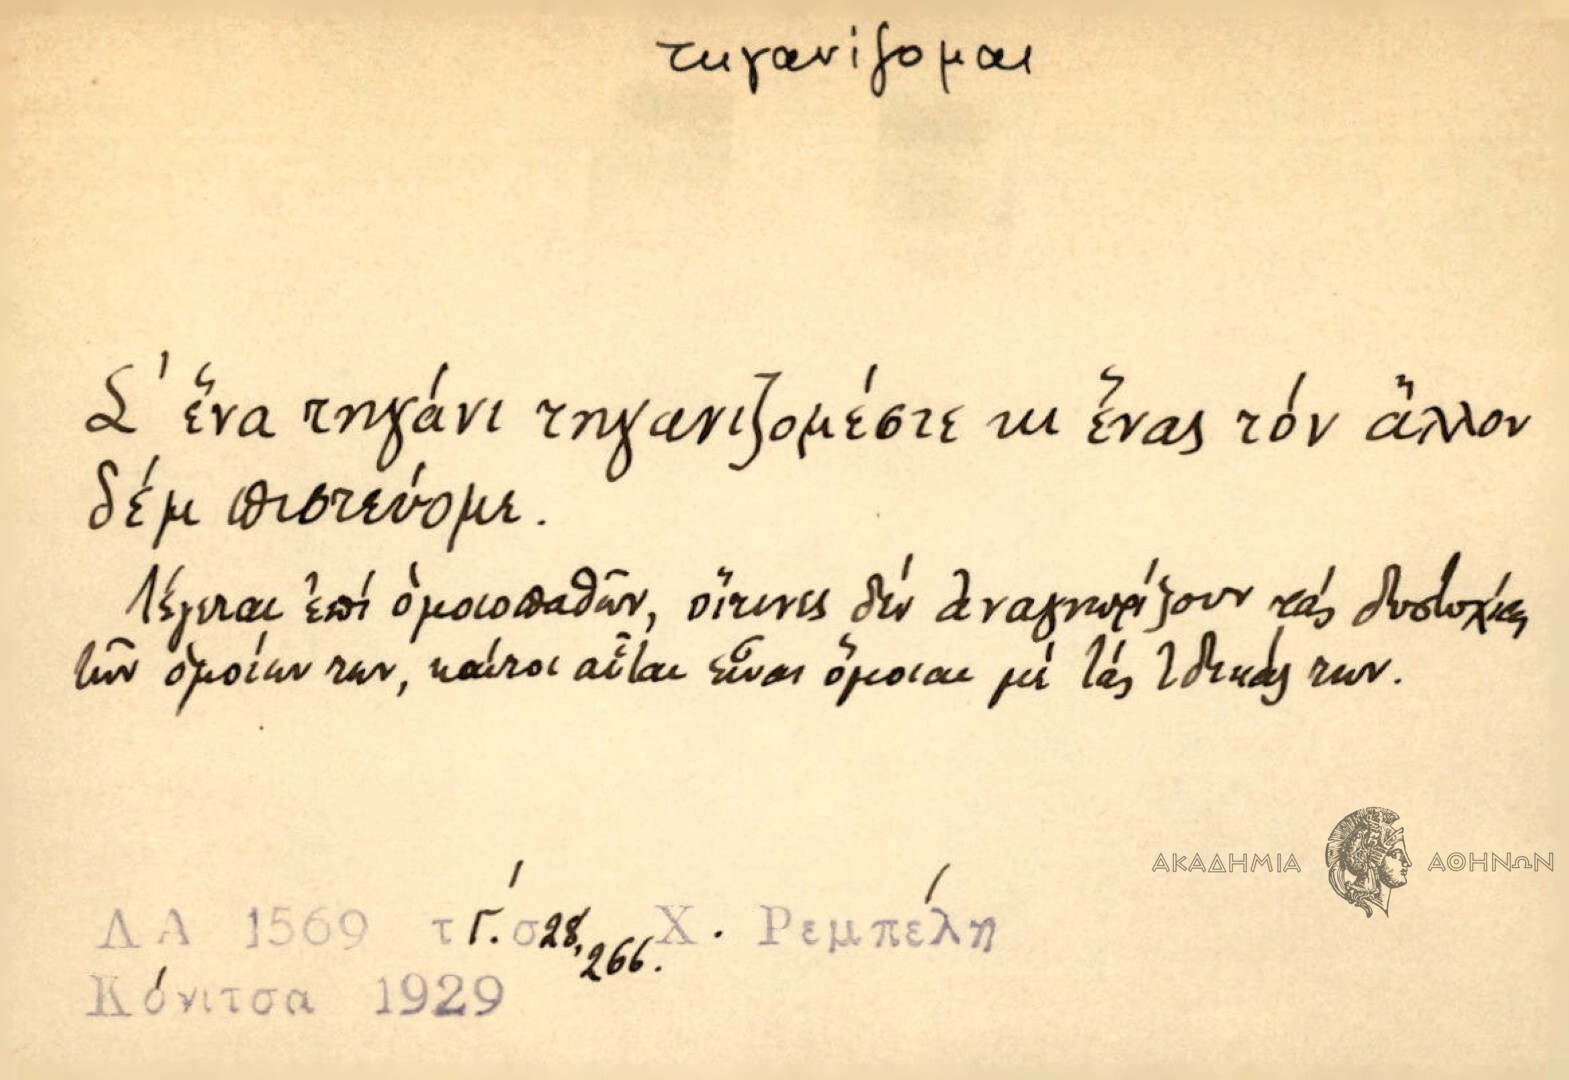 τηγανίζομαι
Σ' ἕνα τηγάνι τηγανιζομέστε κι ἕνας τόν ἄλλον
δέμ πιστεύομε.
Λέγεται ἐπί ὁμοιοπαθῶν, οἵτινες δέν ἀναγνωρίζουν τάς δυστυχίας
τῶν ὁμοίων των, καίτοι αὗται εἶναι ὅμοιαι μέ τάς ἰδικάς των.
ΑΚΑΔΗΜΙΑ ΑΘΗΝΩΝ
ΛΑ 1569 τ Γ'. σ 28, 266. Χ. Ρεμπέλη
Κόνιτσα 1929